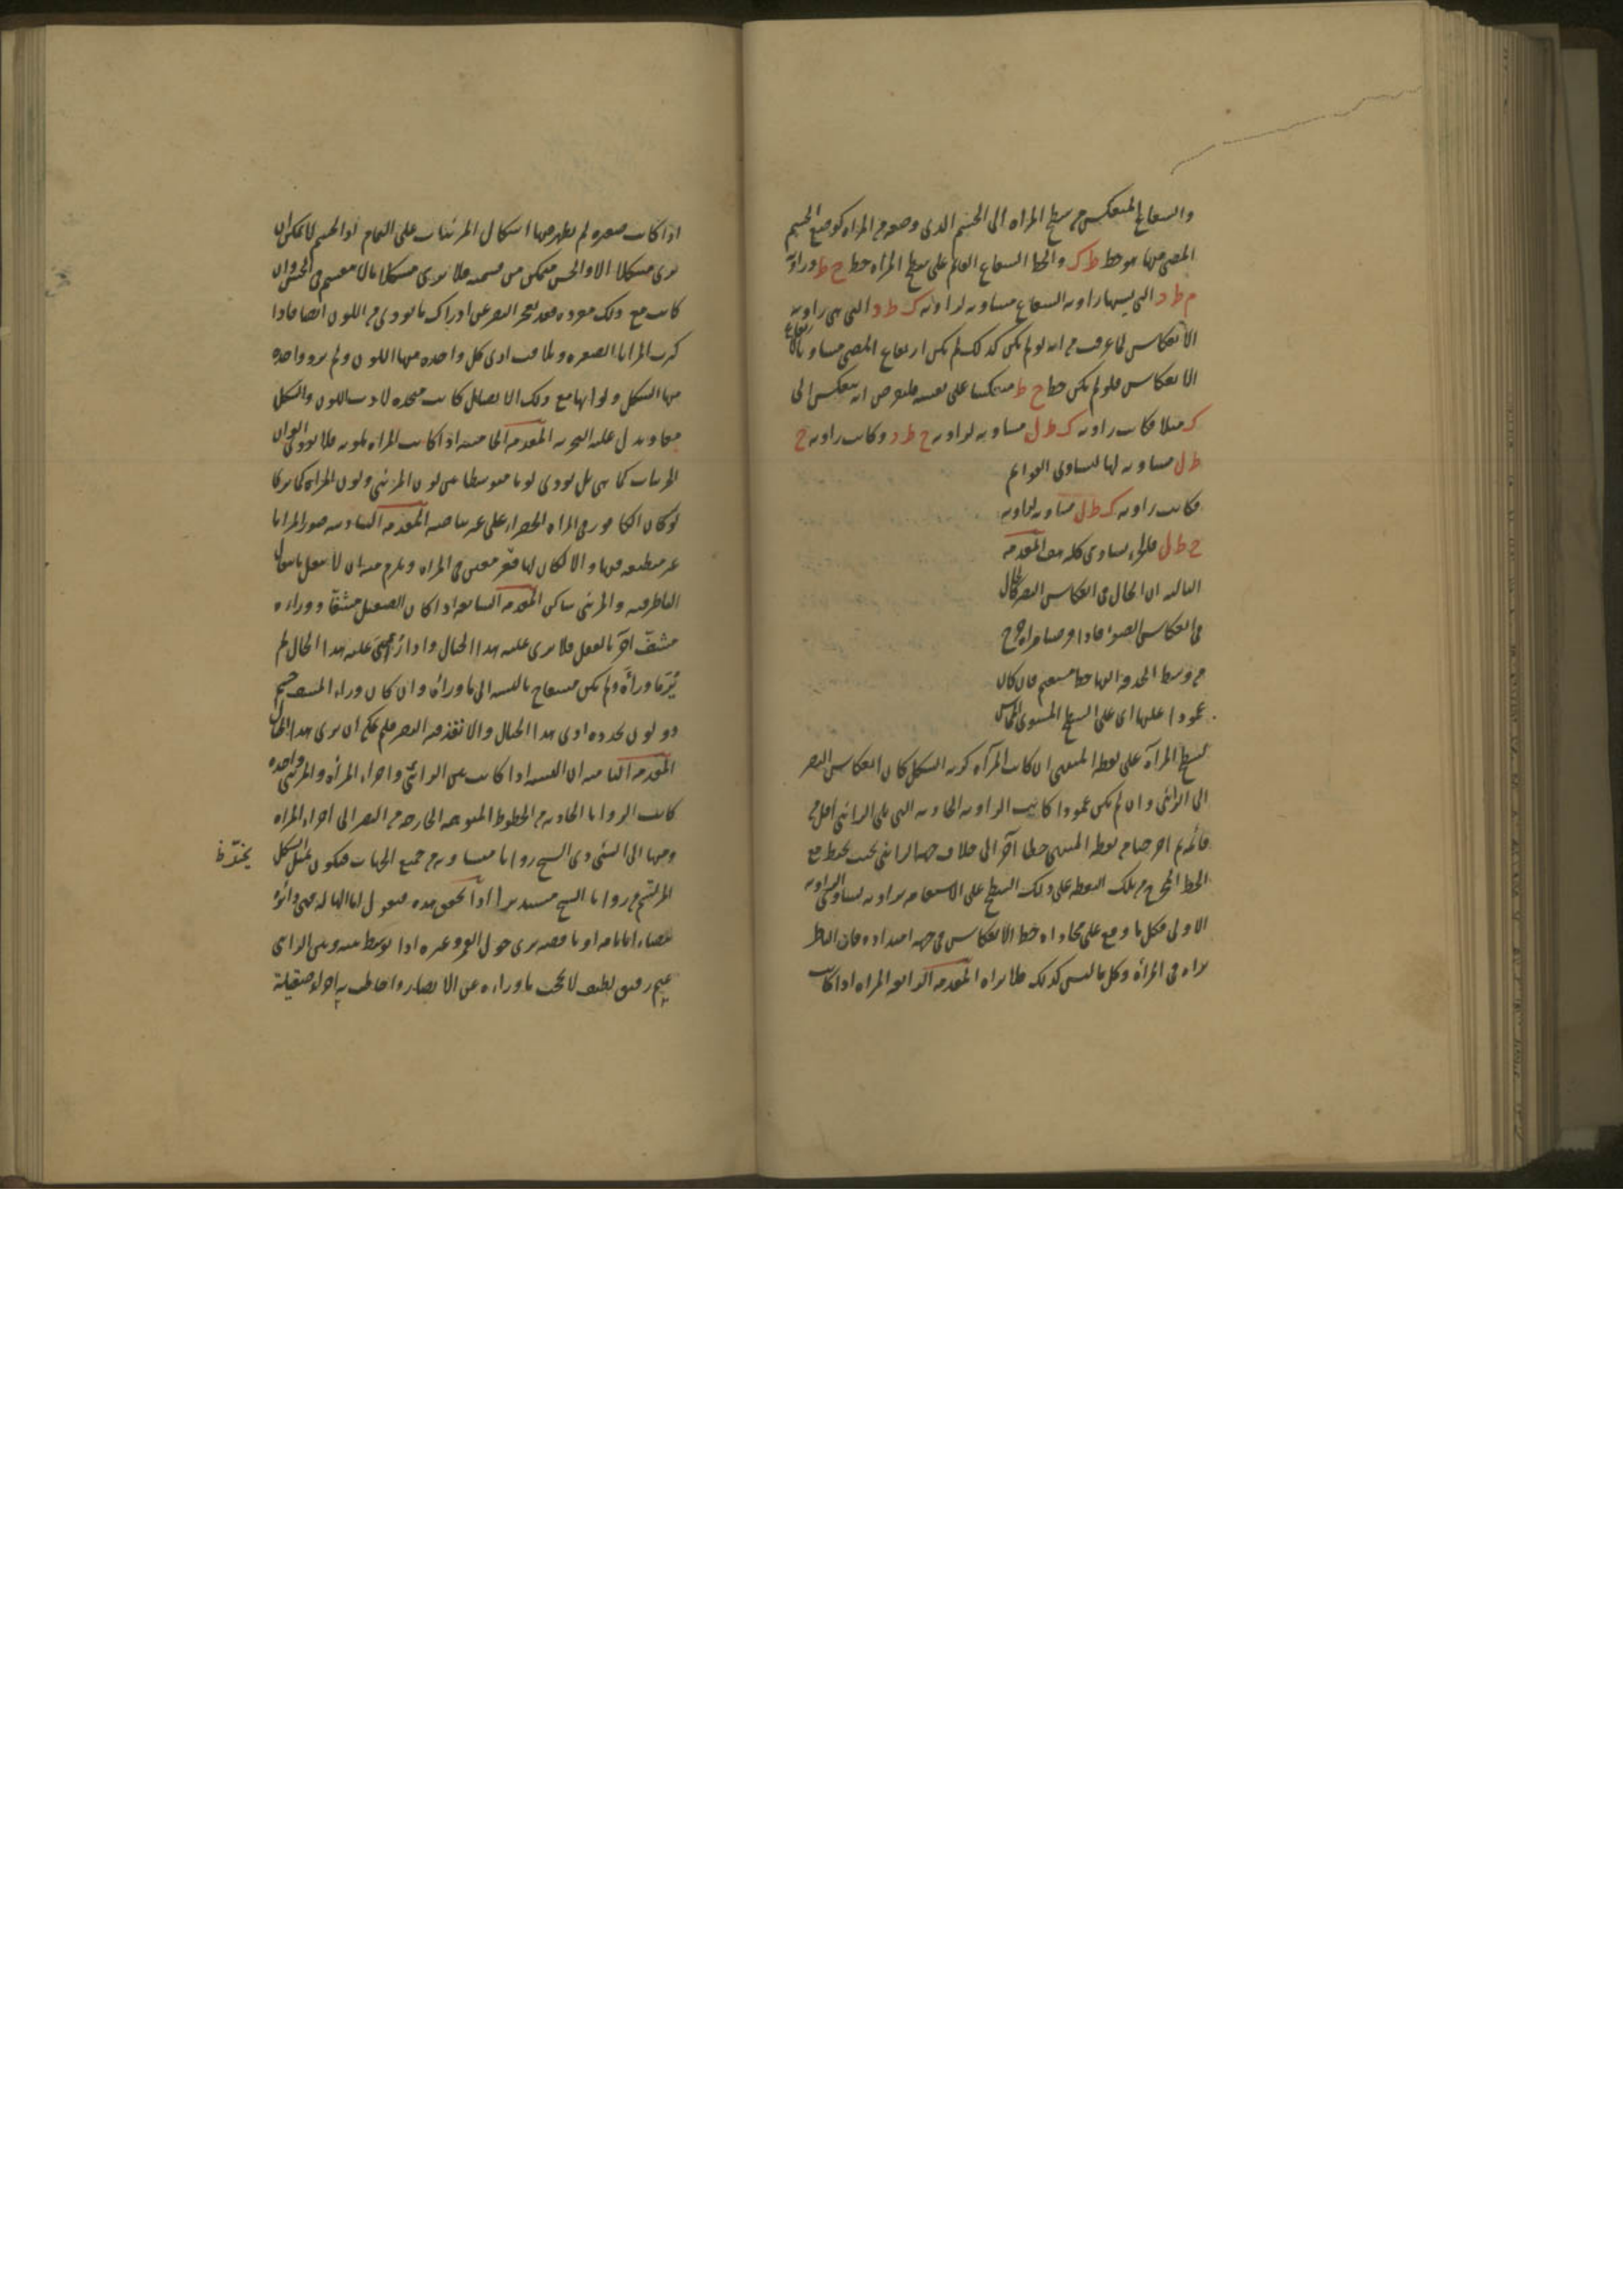 والشعاع المنعكس من سطح المرآة الى الجسم الذي وضعه من المرآة كوضع الجسم
المضيء منها هو خط ط ك والخط الشعاع القائم على سطح المرآة خط ح ط وزاوية
م ط د التي يسميها زاوية الشعاع مساوية لزاوية ك ط د التي هي زاوية
الانعكاس لما عرفت من انه لو لم يكن كذلك لم يكن ارتفاع المضيء مساويا لارتفاع
الانعكاس فلو لم يكن خط ح ط منعكسا على نفسه فلنفرض انه ينعكس الى
ك مثلا فكانت زاوية ك ط ل مساوية لزاوية ح ط د وكانت زاوية ح
ط ل مساوية لها لتساوي القوائم
فكانت زاوية ك ط ل مساوية لزاوية
ح ط ل فالجزء يساوي كله هف المقدمة
الثالثة ان الحال في انعكاس البصر كالحال
في انعكاس الضوء فاذا اخرجنا
من وسط الحدقة اليها خطا مستقيم فان كان
عمودا عليها اي على السطح المستوي المماس
لسطح المرآة على نقطة المنتهى ان كانت المرآة كرية الشكل كان انعكاس البصر
الى الرائي وان لم يكن عمودا كانت الزاوية الحادية التي تلي الرائي اقل من
قائمة ثم اخرجنا من نقطة المنتهى خطا آخر الى خلاف جهة الرائي بحيث يحيط مع
الخط المخرج من تلك النقطة على ذلك السطح على الاستقامة بزاوية تساوي الزاوية
الاولى فكل ما وقع على محاذاة خط الانعكاس في جهة امتداده فان الناظر
يراه في المرآة وكل ما ليس كذلك فلا يراه المقدمة الرابعة المرآة اذا كانت
اذا كانت صغيرة لم يظهر فيها اشكال المرئيات على التمام اذ الجسم لا يمكن ان
يرى مشكلا الا والحس متمكن من قسمته فلا يرى مشكلا ما لا ينقسم في الحس وان
كانت مع ذلك مفردة فقد يعجز البصر عن ادراك ما تؤدي من اللون ايضا فاذا
كثرت المرايا الصغيرة وتلاقت ادى كل واحدة منها اللون ولم يرد واحدة
منها الشكل ولو انها مع ذلك الاتصال كانت متحدة لادت اللون والشكل
معا ويدل عليه التجربة المقدمة الخامسة اذا كانت المرآة ملونة فلا تؤدي الوان
المرئيات كما هي بل تؤدي لونا متوسطا بين لون المرئي ولون المرآة كما يرى
لون الكافور في المرآة الخضراء على غير بياضه المقدمة السادسة صور المرايا
غير منطبعة فيها والا لكان لها مقر معين من المرآة ويلزم منه ان لا ينتقل بانتقال
الناظر فيه والمرئي ساكن المقدمة السابعة اذا كان الصقيل مشفا ووراءه
مشف آخر بالفعل فلا يرى عليه هذا الخيال واذا رئي عليه هذا الخيال لم
ير ما وراءه ولم يكن مشعا بالنسبة الى ما وراءه وان كان وراء المشف جسم
ذو لون يحدده ادى هذا الخيال والا نفذ فيه البصر فلم يمكن ان يرى هذا الخيال
المقدمة الثامنة ان النسبة اذا كانت بين الرائي واجزاء المرآة والمرئي واحدة
كانت الزوايا الحادثة من الخطوط المتوهمة الخارجة من البصر الى اجزاء المرآة
ومنها الى الشيء ذي الشبح زوايا متساوية من جميع الجهات فيكون بمثل الشكل
المرتسم من زوايا الشبح مستديرا اذا تحقق هذه فنقول اما الهالة فهي دائرة
بيضاء اما تامة او ناقصة ترى حول القمر وغيره اذا توسط بينه وبين الرائي
غيم رقيق لطيف لا يحجب ما وراءه عن الابصار واحاطت به اجزاء صقيلة